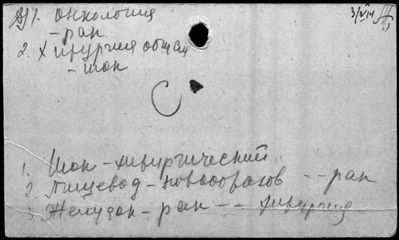 1. онкология
- рак
2. Хирургия общая
- шок
1. Шок - хирургический
2. пищевод - новообразов -- рак
3. Желудок - рак -- хирургия